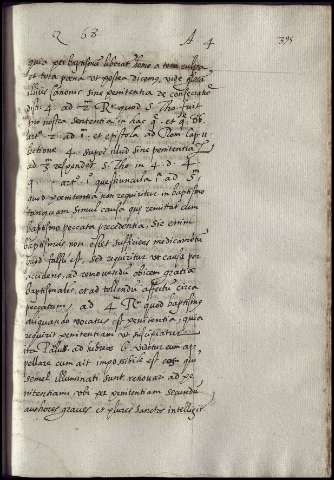 2 68 A 4 395
quia per baptismū liberat homo a tota culpa
et tota poena ut postea dicemꝰ, vide glosā
illius canonis sine penitentia de consecratione
dist. 4. ad 2ᵐ Rᵉ quod S. Tho. fuit
pro nostra sententia in hac q. et q.
art. 2. ad 1ᵐ. et epistola ad Rom. cap. 11.
lectione 4. super illud sine penitentia
ad 3ᵐ respondet S. Tho. in 4. d. 4.
q. art. questiuncula ad 3ᵐ
quod penitentia non requiritur in baptismo
tanquam simul causa que remittat cum
baptismo peccata precedentia. Sic enim
baptismus non esset sufficiens medicamentū
quod falsū est, sed requiritur ut causa per
accidens, ad removendū obicem gratie
baptismalis, et ad tollendū affectū circa
peccatum, ad 4ᵐ Rᵉ quod baptismꝰ
aliquando vocatus est penitentia, quia
requirit penitentiam ut
ita ad hebreos 6. videtur eum ap-
pellare cum ait impossibile est eos qui
semel illuminati sunt renovari ad pe-
nitentiam, ubi per penitentiam secundū
authores graves et plures sanctos intelligit